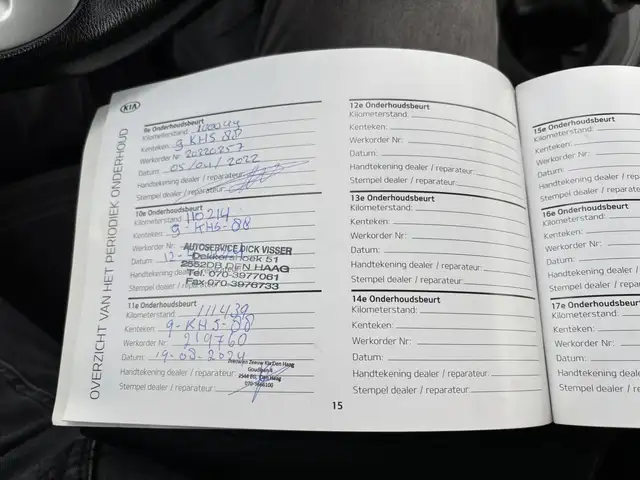 KIA
OVERZICHT VAN HET PERIODIEK ONDERHOUD
9e Onderhoudsbeurt
Kilometerstand:
Kenteken: 9 KHS 88
Werkorder Nr: 20220257
Datum: 05/04/2022
Handtekening dealer / reparateur:
Stempel dealer / reparateur:
10e Onderhoudsbeurt
Kilometerstand: 110214
Kenteken: 9-KHS-88
Werkorder Nr:
AUTOSERVICE DICK VISSER
Datum: 12-
Dekkershoek 51
2552DB DEN HAAG
Handtekening dealer
Tel. 070-3977061
Stempel dealer / repa
Fax 070-3976733
11e Onderhoudsbeurt
Kilometerstand: 111439
Kenteken: 9-KHS-88
Werkorder Nr: 219760
Datum: 19-08-2024
Handtekening dealer / reparateur:
Zeeuw Kia Den Haag
Den Haag
Stempel dealer / reparateur:
12e Onderhoudsbeurt
Kilometerstand:
Kenteken:
Werkorder Nr:
Datum:
Handtekening dealer / reparateur:
Stempel dealer / reparateur:
13e Onderhoudsbeurt
Kilometerstand:
Kenteken:
Werkorder Nr:
Datum:
Handtekening dealer / reparateur:
Stempel dealer / reparateur:
14e Onderhoudsbeurt
Kilometerstand:
Kenteken:
Werkorder Nr:
Datum:
Handtekening dealer / reparateur:
Stempel dealer / reparateur:
15
15e Onderhoudsbeurt
Kilometerstand:
Kenteken:
Werkorder Nr:
Datum:
Handtekening dealer
Stempel dealer / rep
16e Onderhoudsbe
Kilometerstand:
Kenteken:
Werkorder Nr:
Datum:
Handtekening deale
Stempel dealer / re
17e Onderhoudsb
Kilometerstand:
Kenteken:
Werkorder Nr:
Datum:
Handtekening deal
Stempel dealer / re